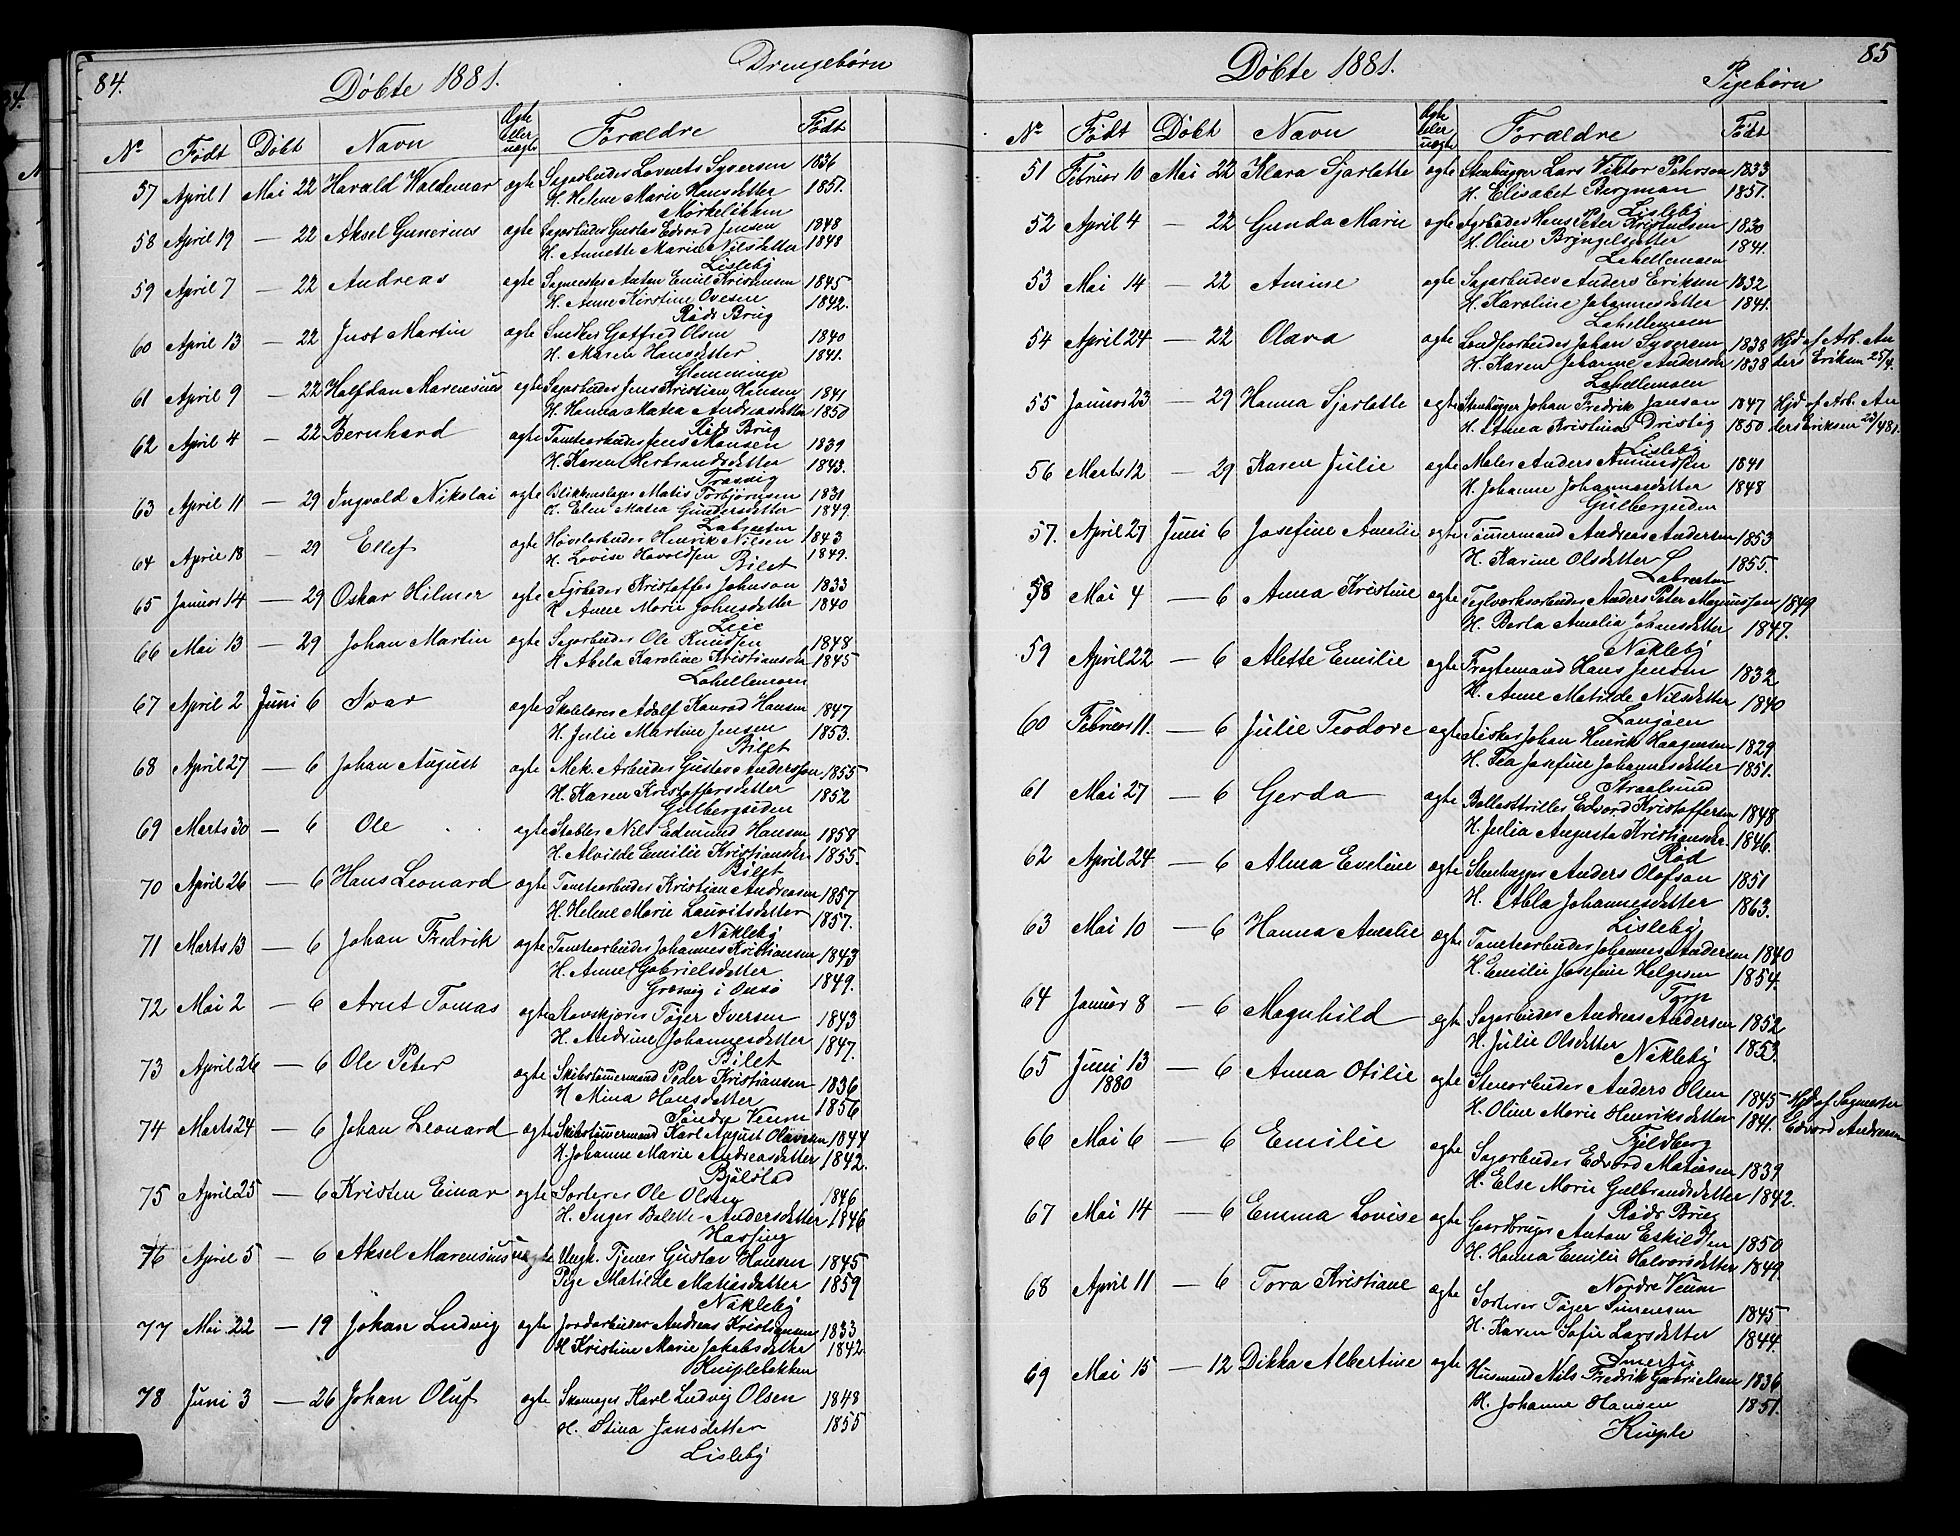 84.
Döbte 1881.
Drengebörn
No Födt Döbt Navn Ægte eller uægte Forældre Födt
57 April 1 Mai 22 Harald Waldemar ægte Sagarbeider Syversen 1836
H. Helene Marie Hansdatter 1851.
58 April 19 — 22 Aksel Gunerius ægte Sagarbeider Gustav Edvard Jensen 1848
H. Annette Marie Nilsdatter 1848
Lisleby
59 April 7 — 22 Andreas ægte Sagmester Anton Emil Kristensen 1845
H. Anne Kirstine Ovesen 1842.
Röds Brug
60 April 13 — 22 Just Martin ægte Snedker Gotfred Olsen 1840
H. Maren Hansdatter 1841.
Glemminge
61 April 9 — 22 Halfdan Marensius ægte Sagarbeider Jens Kristian Hansen 1841
H. Hanna Matea Andreasdatter 1850
Röds Brug
62 April 4 — 22 Bernhard ægte Tomtearbeider Jens Hansen 1839
H. Karen Herbrandsdatter 1843.
Trosvig
63 April 11 — 29 Ingvald Nikolai ægte Blikkenslager Matis Torbjörnsen 1831
H. Elen Matea Gundersdatter 1849.
Labraaten
64 April 18 — 29 Ellef ægte Hövelarbeider Henrik Nilsen 1843
H. Lovise Haraldsen 1849.
Bilet
65 Januar 14 — 29 Oskar Hilmer ægte Kristoffer Johnson 1833
H. Anne Marie Johnsdatter 1840
Leie
66 Mai 13 — 29 Johan Martin ægte Sagarbeider Ole Knudsen 1848
H. Abela Karoline Kristiansdr 1845
Lahellemoen
67 April 2 Juni 6 Ivar ægte Skolelærer Adolf Konrad Hansen 1847
H. Julie Martine Jensen 1853.
Bilet
68 April 27 — 6 Johan August ægte Mek. Arbeider Gustav Andersson 1855
H. Karen Kristoffersdatter 1852
Gulbergsiden
69 Marts 30 — 6 Ole ægte Stabler Nils Edmund Hansen 1858
H. Alvilde Emilie Kristiansdr 1855.
Bilet
70 April 26 — 6 Hans Leonard ægte Tomtearbeider Kristian Andreasen 1857
H. Helene Marie Lauritsdatter 1857.
Nökleby
71 Marts 13 — 6 Johan Fredrik ægte Tomtearbeider Johannes Kristiansen 1843
H. Anne Gabrielsdatter 1849.
Græsvig i Onsö
72 Mai 2 — 6 Arnt Tomas ægte Stavskjærer Töger Iversen 1843
H. Andrine Johannesdatter 1847.
Bilet
73 April 26 — 6 Ole Peter ægte Skibstömmermand Peder Kristiansen 1836
H. Mina Hansdatter 1856
Söndre Veum
74 Marts 24 — 6 Johan Leonard ægte Skibstömmermand Karl August Olavesen 1844
H. Johanne Marie Andreasdatter 1842.
Bjölstad
75 April 25 — 6 Kristen Einar ægte Sorterer Ole Olsen 1846
H. Inger Bolette Andersdatter 1846
Hassing
76 April 5 — 6 Aksel Marensius uægte Ungk. Tjener Gustav Hansen 1845
Pige Matilde Matisdatter 1859
Nökleby
77 Mai 22 — 19 Johan Ludvig ægte Jordarbeider Andreas Kristiansen 1833
H. Kristine Marie Jakobsdatter 1842.
Kniplebakken
78 Juni 3 — 26 Johan Oluf ægte Skomager Karl Ludvig Olsen 1848
H. Stina Jansdatter 1855
Lisleby
85
Döbte 1881.
Pigebörn
No Födt Döbt Navn Ægte eller uægte Forældre Födt
51 Februar 10 Mai 22 Klara Sjarlotte ægte Stenhugger Lars Viktor Peterson 1833
H. Elisabet Bergman 1857.
Lisleby
52 April 4 — 22 Gunda Marie ægte Hans Peter Kristensen 1830
H. Oline Bryngelsdatter 1841.
Lahellemoen
53 Mai 14 — 22 Amine ægte Sagarbeider Anders Eriksen 1832
H. Karoline Johannesdatter 1841.
Lahellemoen
54 April 24 — 22 Olava ægte Landarbeider Johan Syversen 1838 Hjd. af Arb. An
H. Karen Johanne Andersdr 1838 ders Eriksen 25/4.
Lahellemoen
55 Januar 23 — 29 Hanna Sjarlotte ægte Stenhugger Johan Fredrik Janson 1847 Hjd. af Arb. An
H. Anna Kristina Dristig 1850 ders Eriksen 23/4 81.
Lisleby
56 Marts 12 — 29 Karen Julie ægte Maler Anders Amundsen 1841
H. Johanne Johannesdatter 1848
Gulbergsiden
57. April 27 Juni 6 Josefine Amalie ægte Tömmermand Andreas Andersen 1853
H. Karine Olsdatter 1855.
Labraaten
58 Mai 4 — 6 Anna Kristine ægte Teglverksarbeider Anders Peter Magnusson 1849
H. Berta Amelia Johansdatter 1847.
Nökleby
59 April 22 — 6 Alette Emilie ægte Fragtemand Hans Jensen 1832
H. Anne Matilde Nilsdatter 1840
Langöen
60 Februar 11. — 6 Julie Teodore ægte Fisker Johan Henrik Haagensen 1829
H. Tea Josefine Johannesdatter 1851.
Straalsund
61 Mai 27 — 6 Gerda ægte Ballasttriller Edvard Kristoffersen 1848
H. Julia Augusta Kristiansdr. 1846.
Röd
62 April 24. — 6 Alma Eveline ægte Stenhugger Anders Olofson 1851
H. Abla Johannesdatter 1863.
Lisleby
63 Mai 10 — 6 Hanna Amalie ægte Tomtearbeider Johannes Andersen 1840
H. Emilie Josefine Helgesen 1854.
Torp
64 Januar 8 — 6 Magnhild ægte Sagarbeider Andreas Andersen 1852
H. Julie Olsdatter 1853.
Nökleby
65 Juni 13 1880 — 6 Anna Otilie ægte Stenarbeider Anders Olsen 1845 Hjd. af Sagmester
H. Oline Marie Henriksdatter 1841. Edvard Andersen
Fjeldberg
66 Mai 6 — 6 Emilie ægte Sagarbeider Edvard Matisen 1839
H. Else Marie Gulbrandsdatter 1842.
Röds Brug
67 Mai 14 — 6 Emma Lovise ægte Gaardbruger Anton Eskildsen 1850
H. Hanna Emilie Halvorsdatter 1849.
Nordre Veum
68 April 11 — 6 Tora Kristiane ægte Sorterer Töger Simensen 1845
H. Karen Sofie Larsdatter 1844.
Smertu
69 Mai 15 — 12 Dikka Albertine ægte Husmand Nils Fredrik Gabrielsen 1836
H. Johanne Hansen 1851.
Kniple